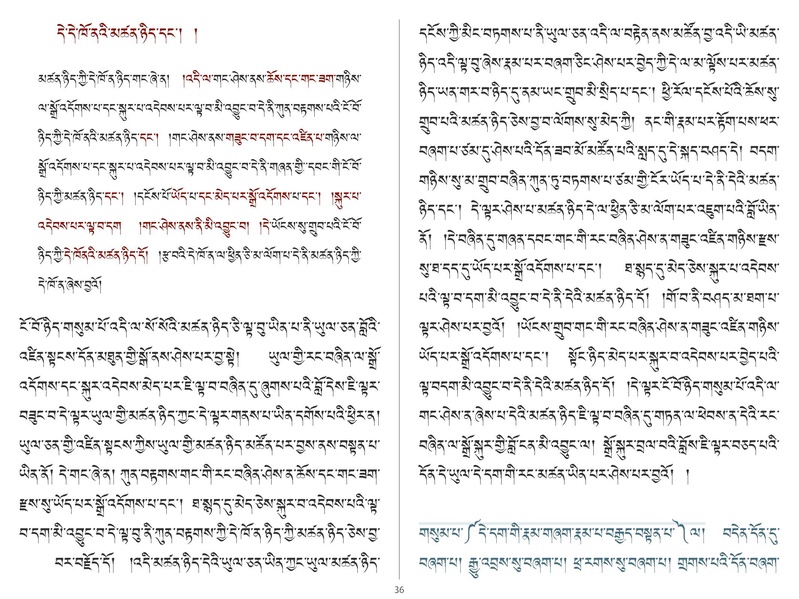 དེ་དེ་ཁོ་ནའི་མཚན་ཉིད་དང་། །
མཚན་ཉིད་ཀྱི་དེ་ཁོ་ན་ཉིད་གང་ཞེ་ན། །འདི་ལ་གང་ཤེས་ནས་ཆོས་དང་གང་ཟག་གཉིས་
ལ་སྒྲོ་འདོགས་པ་དང་སྐུར་པ་འདེབས་པར་ལྟ་བ་མི་འབྱུང་བ་དེ་ནི་ཀུན་བརྟགས་པའི་ངོ་བོ་
ཉིད་ཀྱི་དེ་ཁོ་ནའི་མཚན་ཉིད་དང་། །གང་ཤེས་ནས་གཟུང་བ་དག་དང་འཛིན་པ་གཉིས་ལ་
སྒྲོ་འདོགས་པ་དང་སྐུར་པ་འདེབས་པར་ལྟ་བ་མི་འབྱུང་བ་དེ་ནི་གཞན་གྱི་དབང་གི་ངོ་བོ་
ཉིད་ཀྱི་མཚན་ཉིད་དང་། །དངོས་པོ་ཡོད་པ་དང་མེད་པར་སྒྲོ་འདོགས་པ་དང་། །སྐུར་པ་
འདེབས་པར་ལྟ་བ་དག །གང་ཤེས་ནས་ནི་མི་འབྱུང་བ། །དེ་ཡོངས་སུ་གྲུབ་པའི་ངོ་བོ་
ཉིད་ཀྱི་དེ་ཁོ་ནའི་མཚན་ཉིད་དོ། །རྩ་བའི་དེ་ཁོ་ན་ལ་ཕྱིན་ཅི་མ་ལོག་པ་དེ་ནི་མཚན་ཉིད་ཀྱི་
དེ་ཁོ་ན་ཞེས་བྱའོ།
ངོ་བོ་ཉིད་གསུམ་པོ་འདི་ལ་སོ་སོའི་མཚན་ཉིད་ཅི་ལྟ་བུ་ཡིན་པ་ནི་ཡུལ་ཅན་བློའི་
འཛིན་སྟངས་དོན་མཐུན་གྱི་སྒོ་ནས་ཤེས་པར་བྱ་སྟེ། ཡུལ་གྱི་རང་བཞིན་ལ་སྒྲོ་
འདོགས་དང་སྐུར་འདེབས་མེད་པར་ཇི་ལྟ་བ་བཞིན་དུ་ཞུགས་པའི་བློ་དེས་ཇི་ལྟར་
བཟུང་བ་དེ་ལྟར་ཡུལ་གྱི་མཚན་ཉིད་ཀྱང་དེ་ལྟར་གནས་པ་ཡིན་དགོས་པའི་ཕྱིར་ན།
ཡུལ་ཅན་གྱི་འཛིན་སྟངས་ཀྱིས་ཡུལ་གྱི་མཚན་ཉིད་མཚོན་པར་བྱས་ནས་བསྟན་པ་
ཡིན་ནོ། དེ་གང་ཞེ་ན། ཀུན་བརྟགས་གང་གི་རང་བཞིན་ཤེས་ན་ཆོས་དང་གང་ཟག་
རྫས་སུ་ཡོད་པར་སྒྲོ་འདོགས་པ་དང་། ཐ་སྙད་དུ་མེད་ཅེས་སྐུར་བ་འདེབས་པའི་ལྟ་
བ་དག་མི་འབྱུང་བ་དེ་ལྟ་བུ་ནི་ཀུན་བརྟགས་ཀྱི་དེ་ཁོ་ན་ཉིད་ཀྱི་མཚན་ཉིད་ཅེས་བྱ་
བར་བརྗོད་དོ། །འདི་མཚན་ཉིད་དེའི་ཡུལ་ཅན་ཡིན་ཀྱང་ཡུལ་གྱི་མཚན་ཉིད་
དངོས་ཀྱི་མིང་བཏགས་པ་ནི་ཡུལ་ཅན་འདི་ལ་བརྟེན་ནས་མཚོན་བྱ་འདི་ཡི་མཚན་
ཉིད་འདི་ལྟ་བུ་ཞེས་རྣམ་པར་བཞག་ཅིང་ཤེས་པར་བྱེད་ཀྱི་དེ་ལ་མ་ལྟོས་པར་མཚན་
ཉིད་ཡན་གར་བ་ཉིད་དུ་ནམ་ཡང་གྲུབ་མི་སྲིད་པ་དང་། ཕྱི་རོལ་དངོས་པོའི་ཆོས་སུ་
གྲུབ་པའི་མཚན་ཉིད་ཅེས་བྱ་བ་ལོགས་སུ་མེད་ཀྱི། ནང་གི་རྣམ་པར་རྟོག་པས་ཕར་
བཞག་པ་ཙམ་དུ་ཤེས་པའི་དོན་ཟབ་མོ་མཚོན་པའི་སླད་དུ་དེ་སྐད་བཤད་དེ། བདག་
གཉིས་སུ་མ་གྲུབ་བཞིན་ཀུན་ཏུ་བཏགས་པ་ཙམ་གྱི་ངོར་ཡོད་པ་དེ་ནི་དེའི་མཚན་
ཉིད་དང་། དེ་ལྟར་ཤེས་པ་མཚན་ཉིད་དེ་ལ་ཕྱིན་ཅི་མ་ལོག་པར་འཇུག་པའི་བློ་ཡིན་
ནོ། །དེ་བཞིན་དུ་གཞན་དབང་གང་གི་རང་བཞིན་ཤེས་ན་གཟུང་འཛིན་གཉིས་རྫས་
སུ་ཐ་དད་དུ་ཡོད་པར་སྒྲོ་འདོགས་པ་དང་། ཐ་སྙད་དུ་མེད་ཅེས་སྐུར་པ་འདེབས་
པའི་ལྟ་བ་དག་མི་འབྱུང་བ་དེ་ནི་དེའི་མཚན་ཉིད་དོ། །གོ་བ་ནི་བཤད་མ་ཐག་པ་
ལྟར་ཤེས་པར་བྱའོ། །ཡོངས་གྲུབ་གང་གི་རང་བཞིན་ཤེས་ན་གཟུང་འཛིན་གཉིས་
ཡོད་པར་སྒྲོ་འདོགས་པ་དང་། སྟོང་ཉིད་མེད་པར་སྐུར་བ་འདེབས་པར་བྱེད་པའི་
ལྟ་བ་དག་མི་འབྱུང་བ་དེ་ནི་དེའི་མཚན་ཉིད་དོ། །དེ་ལྟར་ངོ་བོ་ཉིད་གསུམ་པོ་འདི་ལ་
གང་ཤེས་ན་ཞེས་པ་དེའི་མཚན་ཉིད་ཇི་ལྟ་བ་བཞིན་དུ་གཏན་ལ་ཕེབས་ན་དེའི་རང་
བཞིན་ལ་སྒྲོ་སྐུར་གྱི་བློ་ངན་མི་འབྱུང་ལ། སྒྲོ་སྐུར་བྲལ་བའི་བློས་ཇི་ལྟར་བཅད་པའི་
དོན་དེ་ཡུལ་དེ་དག་གི་རང་མཚན་ཡིན་པར་ཤེས་པར་བྱའོ། །
གསུམ་པ་༼དེ་དག་གི་རྣམ་གཞག་རྣམ་པ་བརྒྱད་བསྟན་པ་༽ལ། བདེན་དོན་དུ་
བཞག་པ། རྒྱུ་འབྲས་སུ་བཞག་པ། ཕྲ་རགས་སུ་བཞག་པ། གྲགས་པའི་དོན་བཞག་
36